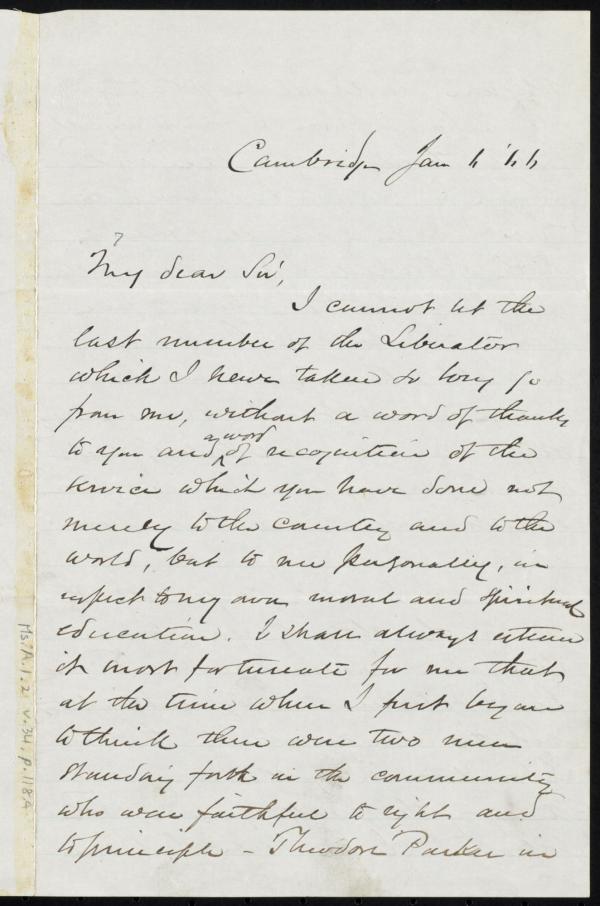 Cambridge Jan 6 '66
My dear Sir,
I cannot let the
last number of the Liberator
which I have taken so long go
from me, without a word of thanks
to you and a word of recognition of the
service which you have done not
merely to the country and to the
world, but to me personally, in
respect to my own moral and spiritual
education. I shall always esteem
it most fortunate for me that
at the time when I first began
to think there were two men
standing forth in the community
who were faithful to right and
to principle - Theodore Parker in
Ms.A.1.2 v.34, p.118A